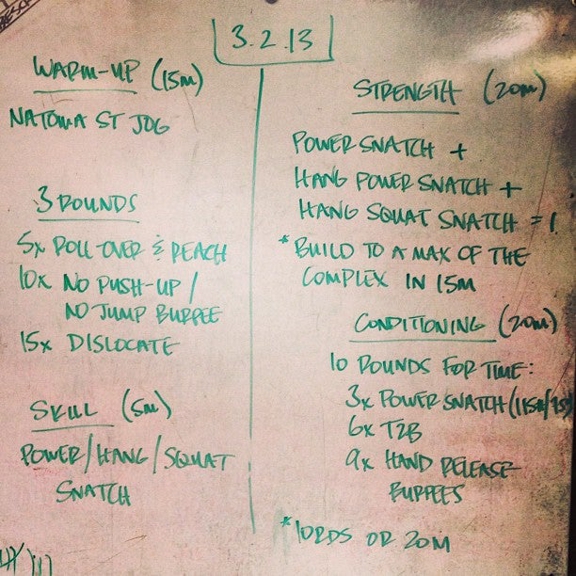 3.2.13
WARM-UP (15M)
NATOMA ST JOG
3 ROUNDS
5x ROLL-OVER & REACH
10x NO PUSH-UP /
NO JUMP BURPEE
15x DISLOCATE
SKILL (5M)
POWER/HANG/SQUAT
SNATCH
STRENGTH (20M)
POWER SNATCH +
HANG POWER SNATCH +
HANG SQUAT SNATCH = 1
* BUILD TO A MAX OF THE
COMPLEX IN 15M
CONDITIONING (20M)
10 ROUNDS FOR TIME:
3x POWER SNATCH (115M/75)
6x T2B
9x HAND RELEASE
BURPEES
* 10RDS OR 20M